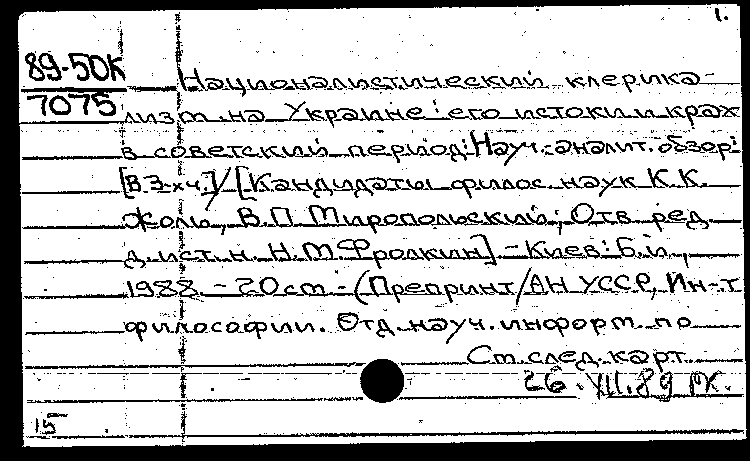 1.
89-50К
7075
Националистический клерика-
лизм на Украине: его истоки и крах
в советский период: Науч.-аналит. обзор:
[В 3-х ч.] / [Кандидаты филос. наук К.К.
Жоль, В.П. Миропольский; Отв. ред.
д. ист. н. Н.М. Фролкин] - Киев: Б.и.,
1988. - 20 см. - (Препринт / АН УССР, Ин-т
философии. Отд. науч. информ. по
См. след. карт.
26.XII.89
15